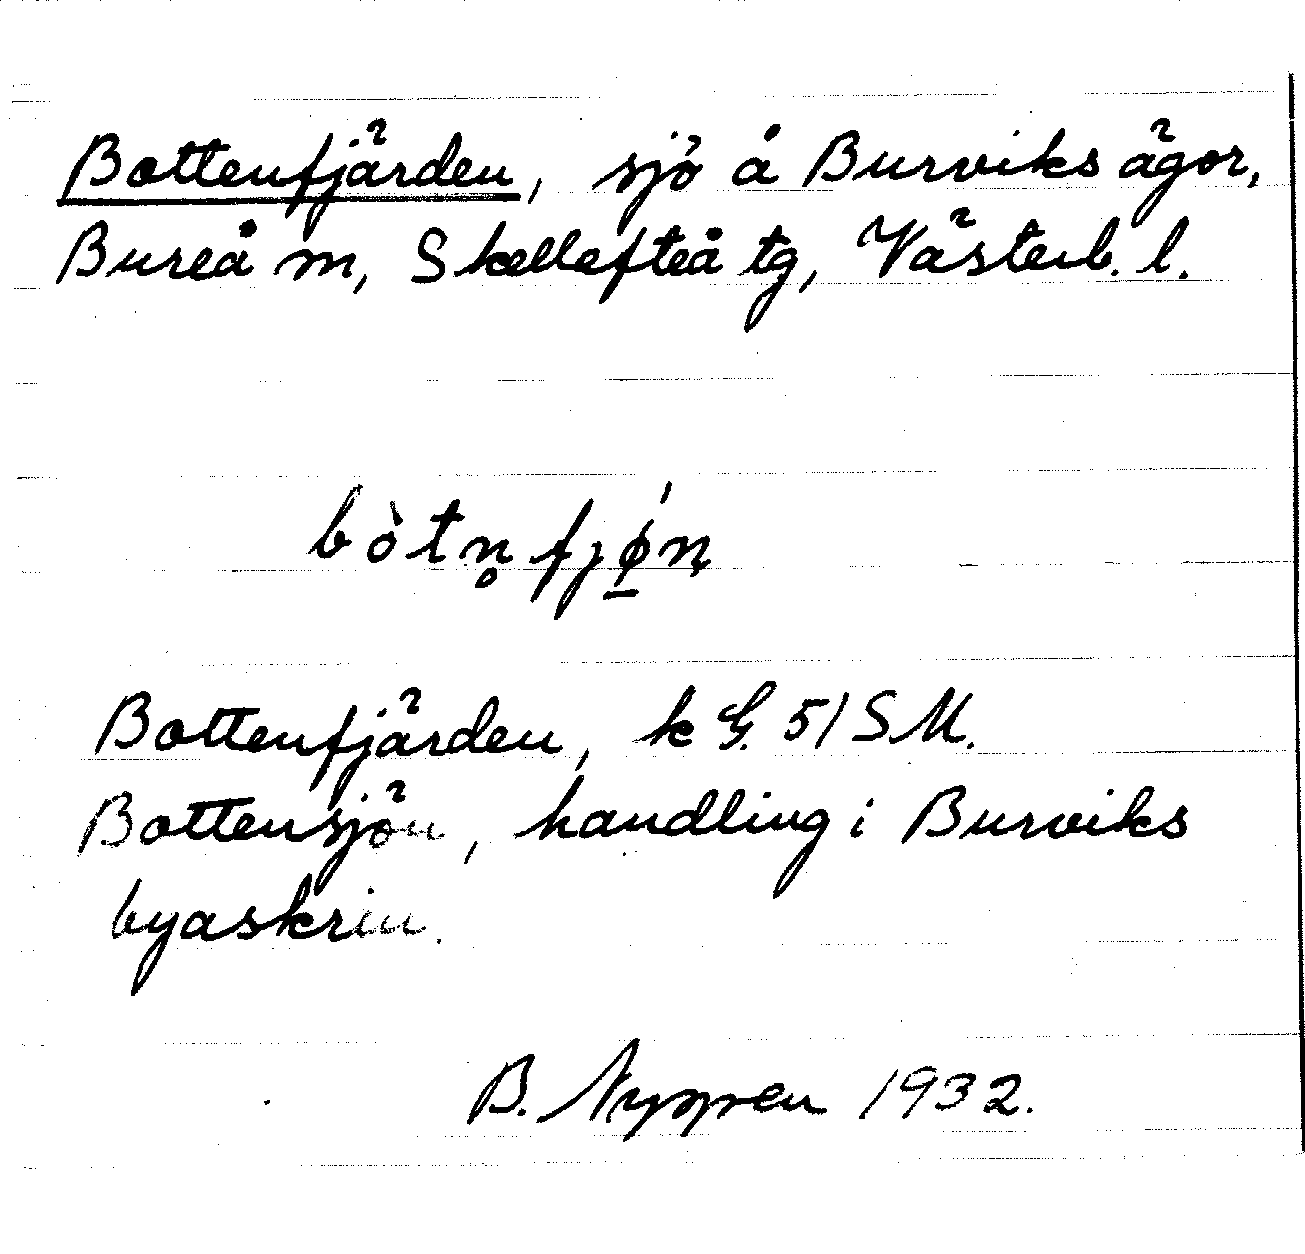 Bottenfjärden, sjö å Burviks ägor,
Bureå m, Skellefteå tg, Västerb. l.
bòtn̥fjǿ̱ṇ
Bottenfjärden, k G. 51 SM.
Bottensjön, handling i Burviks
byaskrin.
B. 1932.